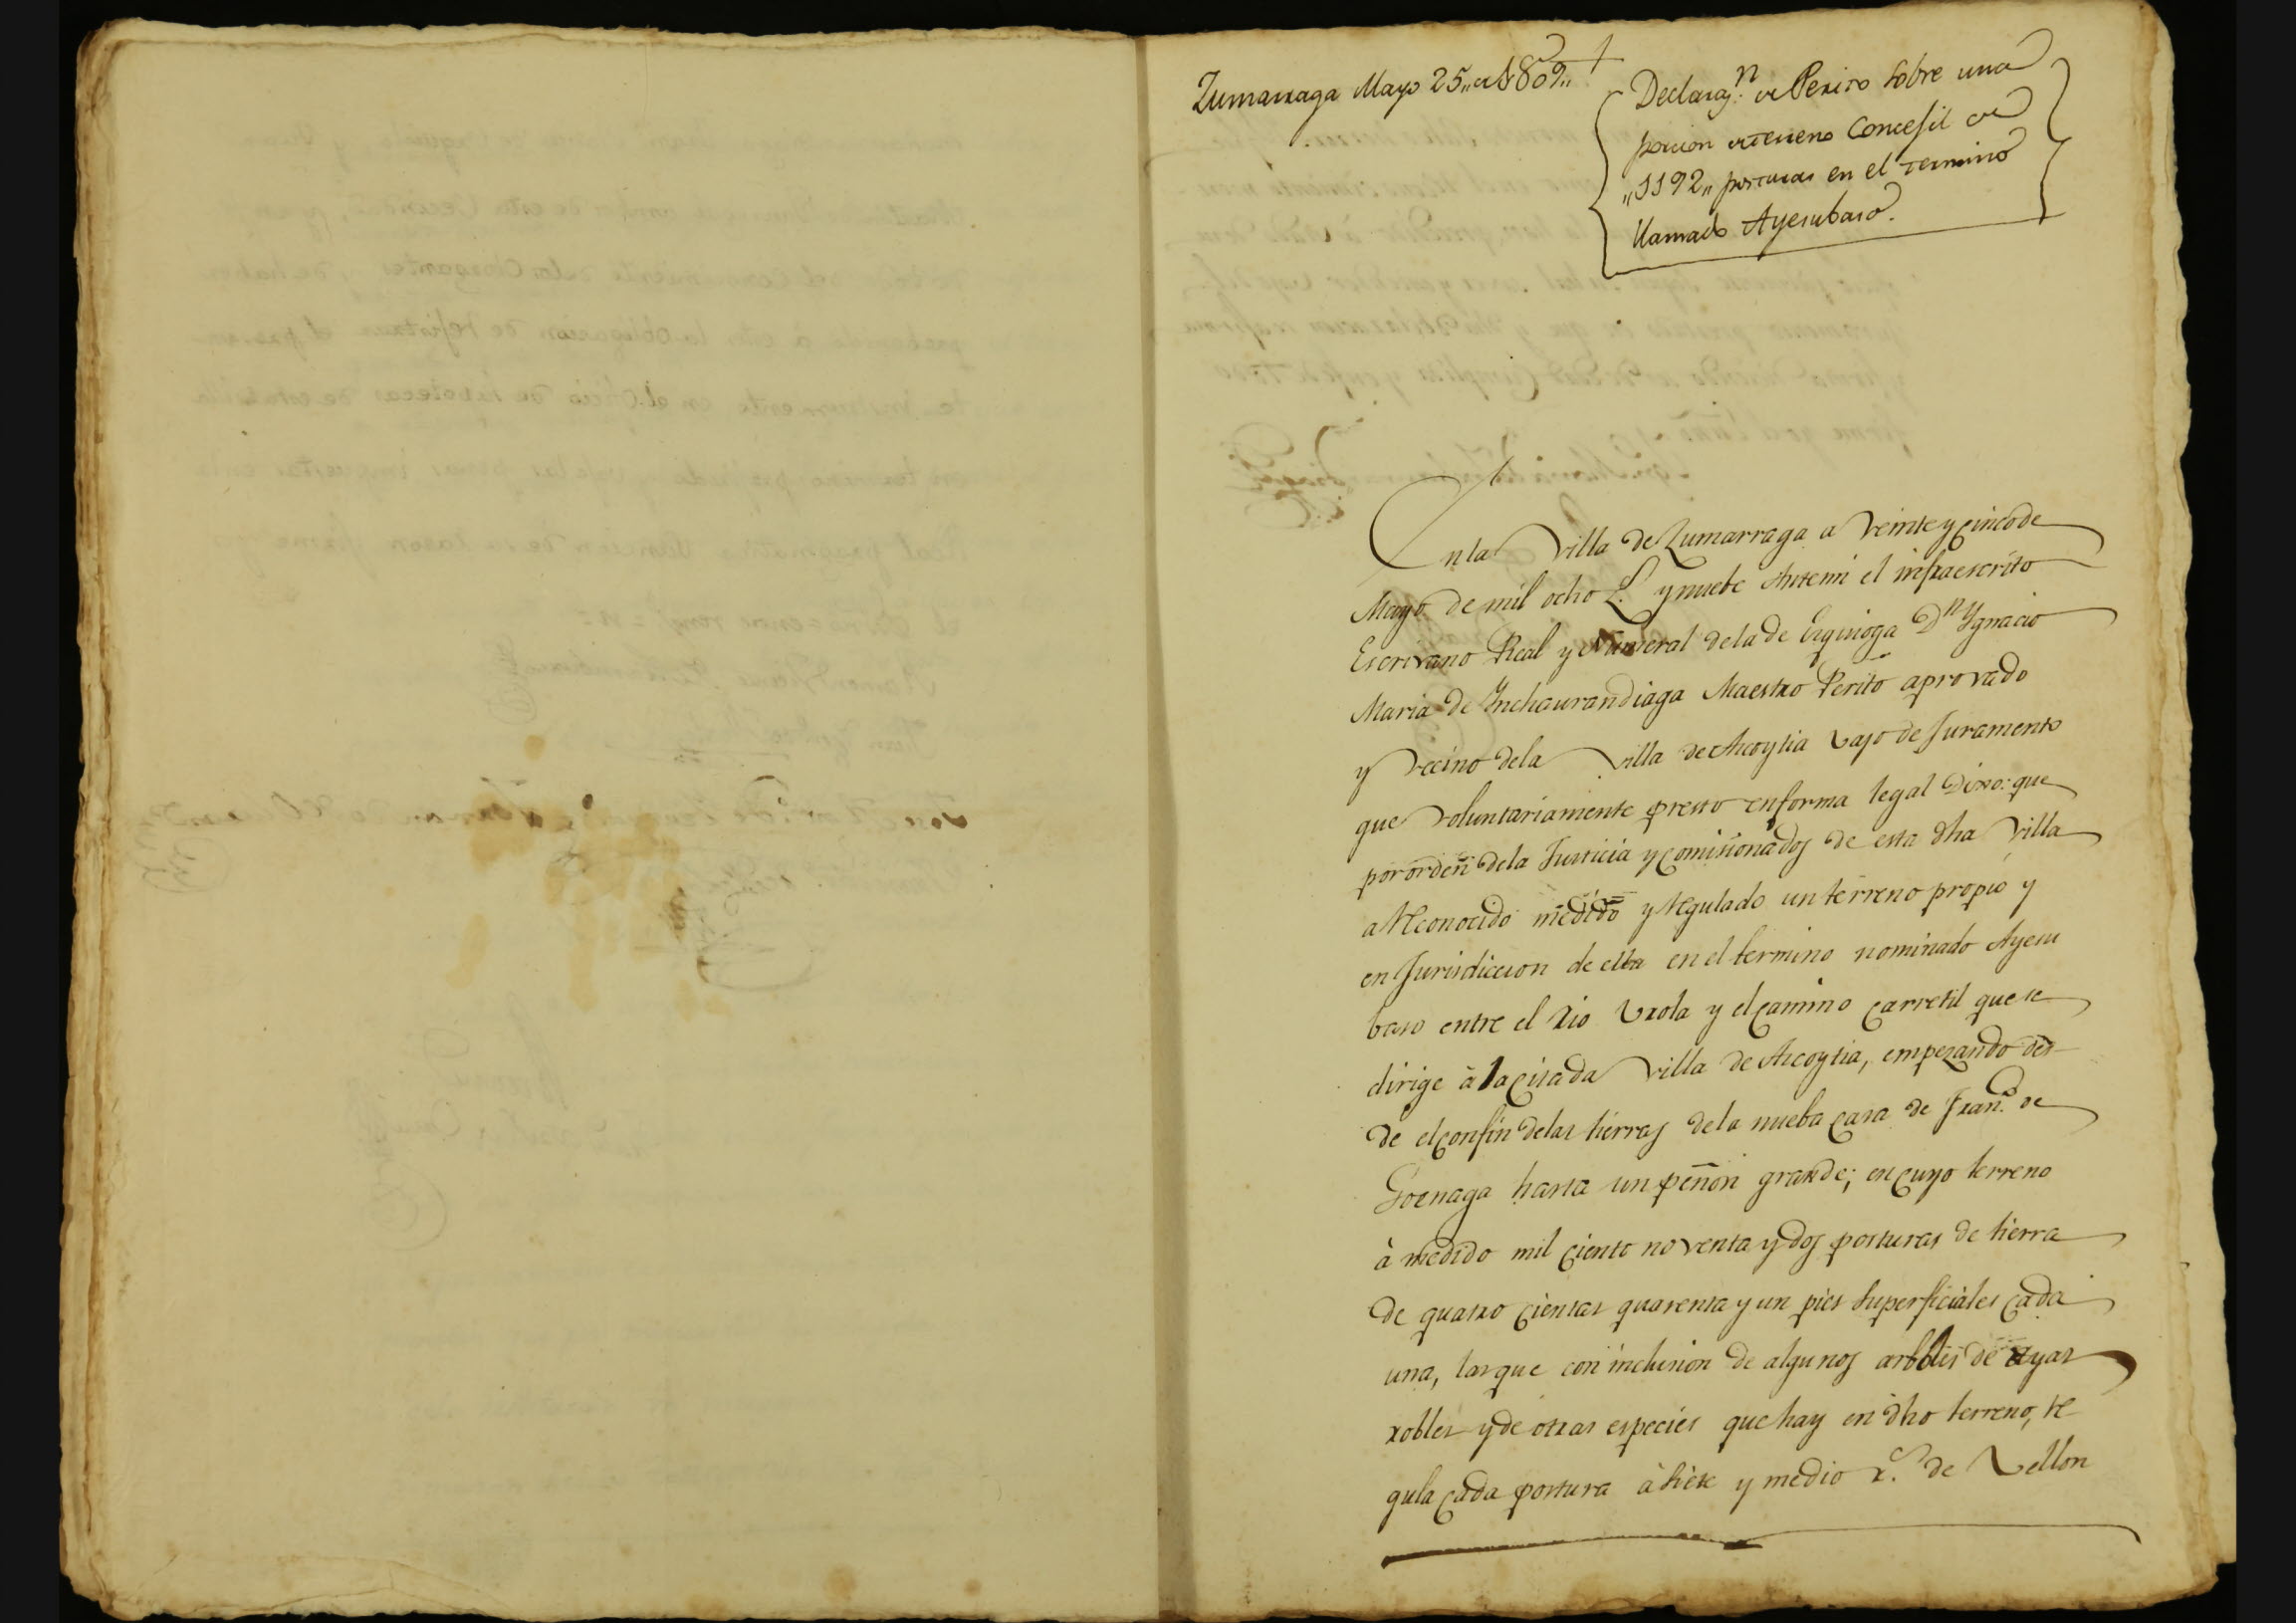 Zumarraga Mayo 25,, de 1809,,
Declaraz.n de Perito sobre una
porcion de terreno Concejil de
,,1192,, posturas en el termino
llamado Ayesubaso.
En la Villa de Zumarraga a Veinte y Cinco de
Mayo de mil ocho C. y nuebe Ante mi el infraescrito
Escrivano Real y Numeral de la de Ezquioga Dn Ygnacio
Maria de Ynchaurandiaga Maestro Perito aprovado
y vecino de la Villa de Azcoytia vajo de Juramento
que voluntariamente presto en forma legal Dixo: que
por orden de la Justicia y Comisionados de esta dha Villa
a Reconocido medido y regulado un terreno propio y
en Jurisdiccion de ella en el termino nominado Ayesu
baso entre el Rio Urola y el Camino Carretil que se
dirige à la Citada Villa de Azcoytia, empezando des-
de el Confin de las tierras de la nueba Casa de Fran.co de
Goenaga hasta un peñon grande; en Cuyo terreno
à medido mil Ciento noventa y dos posturas de tierra
de quatro Cientas quarenta y un pies superficiales Cada
una, las que con inclusion de algunos arboles de ayas
robles y de otras especies que hay en dho terreno, re-
gula Cada postura à siete y medio r.s de Vellon